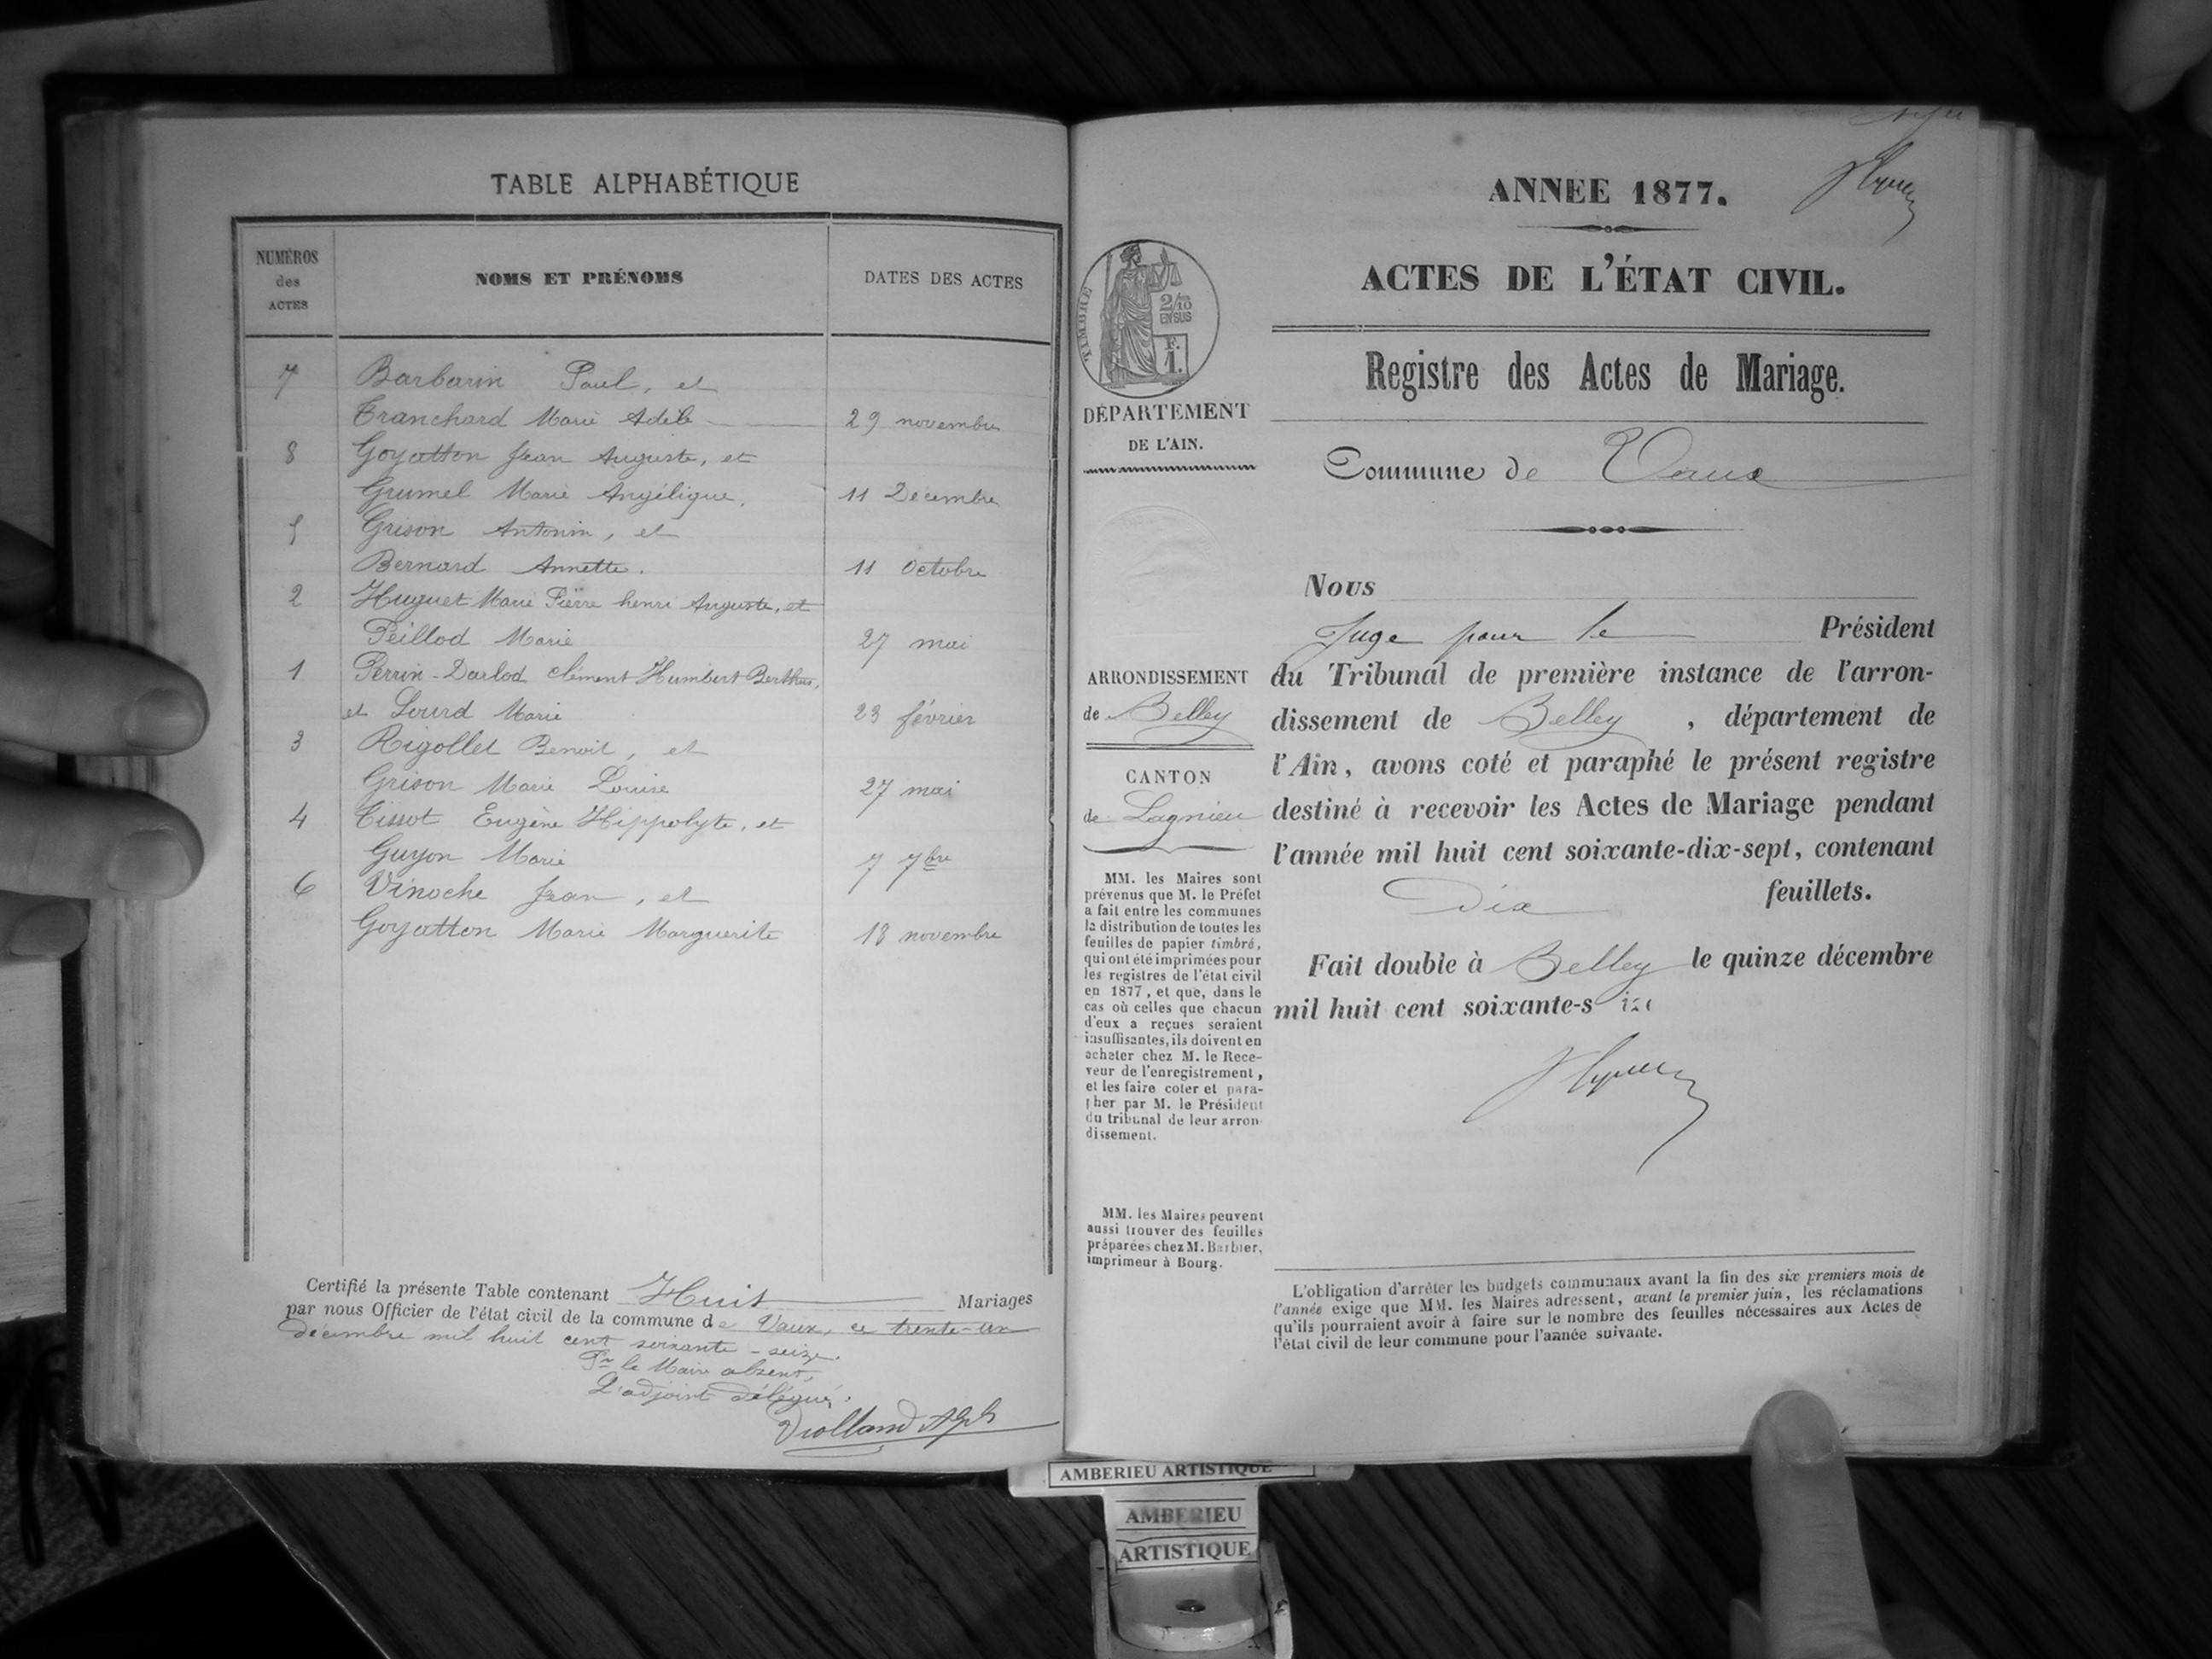 TABLE ALPHABÉTIQUE
NUMÉROS
des
ACTES
NOMS ET PRÉNOMS
DATES DES ACTES
7 Barbarin Paul, et
Tranchard Marie Adèle 29 novembre
8 Goyatton Jean Auguste, et
Grumel Marie Angélique, 11 Décembre
5 Grison Antonin, et
Bernard Annette. 11 Octobre
2 Huguet Marie Pierre henri Auguste, et
Peillod Marie 27 mai
1 Perrin-Darlod Clément Humbert
et Lourd Marie 23 février
3 Rigollet Benoit, et
Grison Marie Louise 27 mai
4 Tissot Eugène Hippolyte, et
Guyon Marie 7 7bre
6 Vinoche Jean, et
Goyatton Marie Marguerite 18 novembre
Certifié la présente Table contenant Huit Mariages
par nous Officier de l'état civil de la commune de Vaux, ce trente-un
décembre mil huit cent soixante-seize.
Pr le Maire absent,
L'adjoint délégué.
ANNEE 1877.
ACTES DE L'ÉTAT CIVIL.
Registre des Actes de Mariage.
TIMBRE
2/10
EN SUS
F.
1.
DÉPARTEMENT
DE L'AIN.
Commune de Vaux
Nous
Juge pour le Président
du Tribunal de première instance de l'arron-
dissement de Belley, département de
l'Ain, avons coté et paraphé le présent registre
destiné à recevoir les Actes de Mariage pendant
l'année mil huit cent soixante-dix-sept, contenant
Dix feuillets.
Fait double à Belley le quinze décembre
mil huit cent soixante-s ize
ARRONDISSEMENT
de Belley
CANTON
de Lagnieu
MM. les Maires sont
prévenus que M. le Préfet
a fait entre les communes
la distribution de toutes les
feuilles de papier timbré,
qui ont été imprimées pour
les registres de l'état civil
en 1877, et que, dans le
cas où celles que chacun
d'eux a reçues seraient
insuffisantes, ils doivent en
acheter chez M. le Rece-
veur de l'enregistrement,
et les faire coter et para-
pher par M. le Président
du tribunal de leur arron-
dissement.
MM. les Maires peuvent
aussi trouver des feuilles
préparées chez M. Barbier,
imprimeur à Bourg.
L'obligation d'arrêter les budgets communaux avant la fin des six premiers mois de
l'année exige que MM. les Maires adressent, avant le premier juin, les réclamations
qu'ils pourraient avoir à faire sur le nombre des feuilles nécessaires aux Actes de
l'état civil de leur commune pour l'année suivante.
AMBERIEU ARTISTIQUE
AMBERIEU
ARTISTIQUE